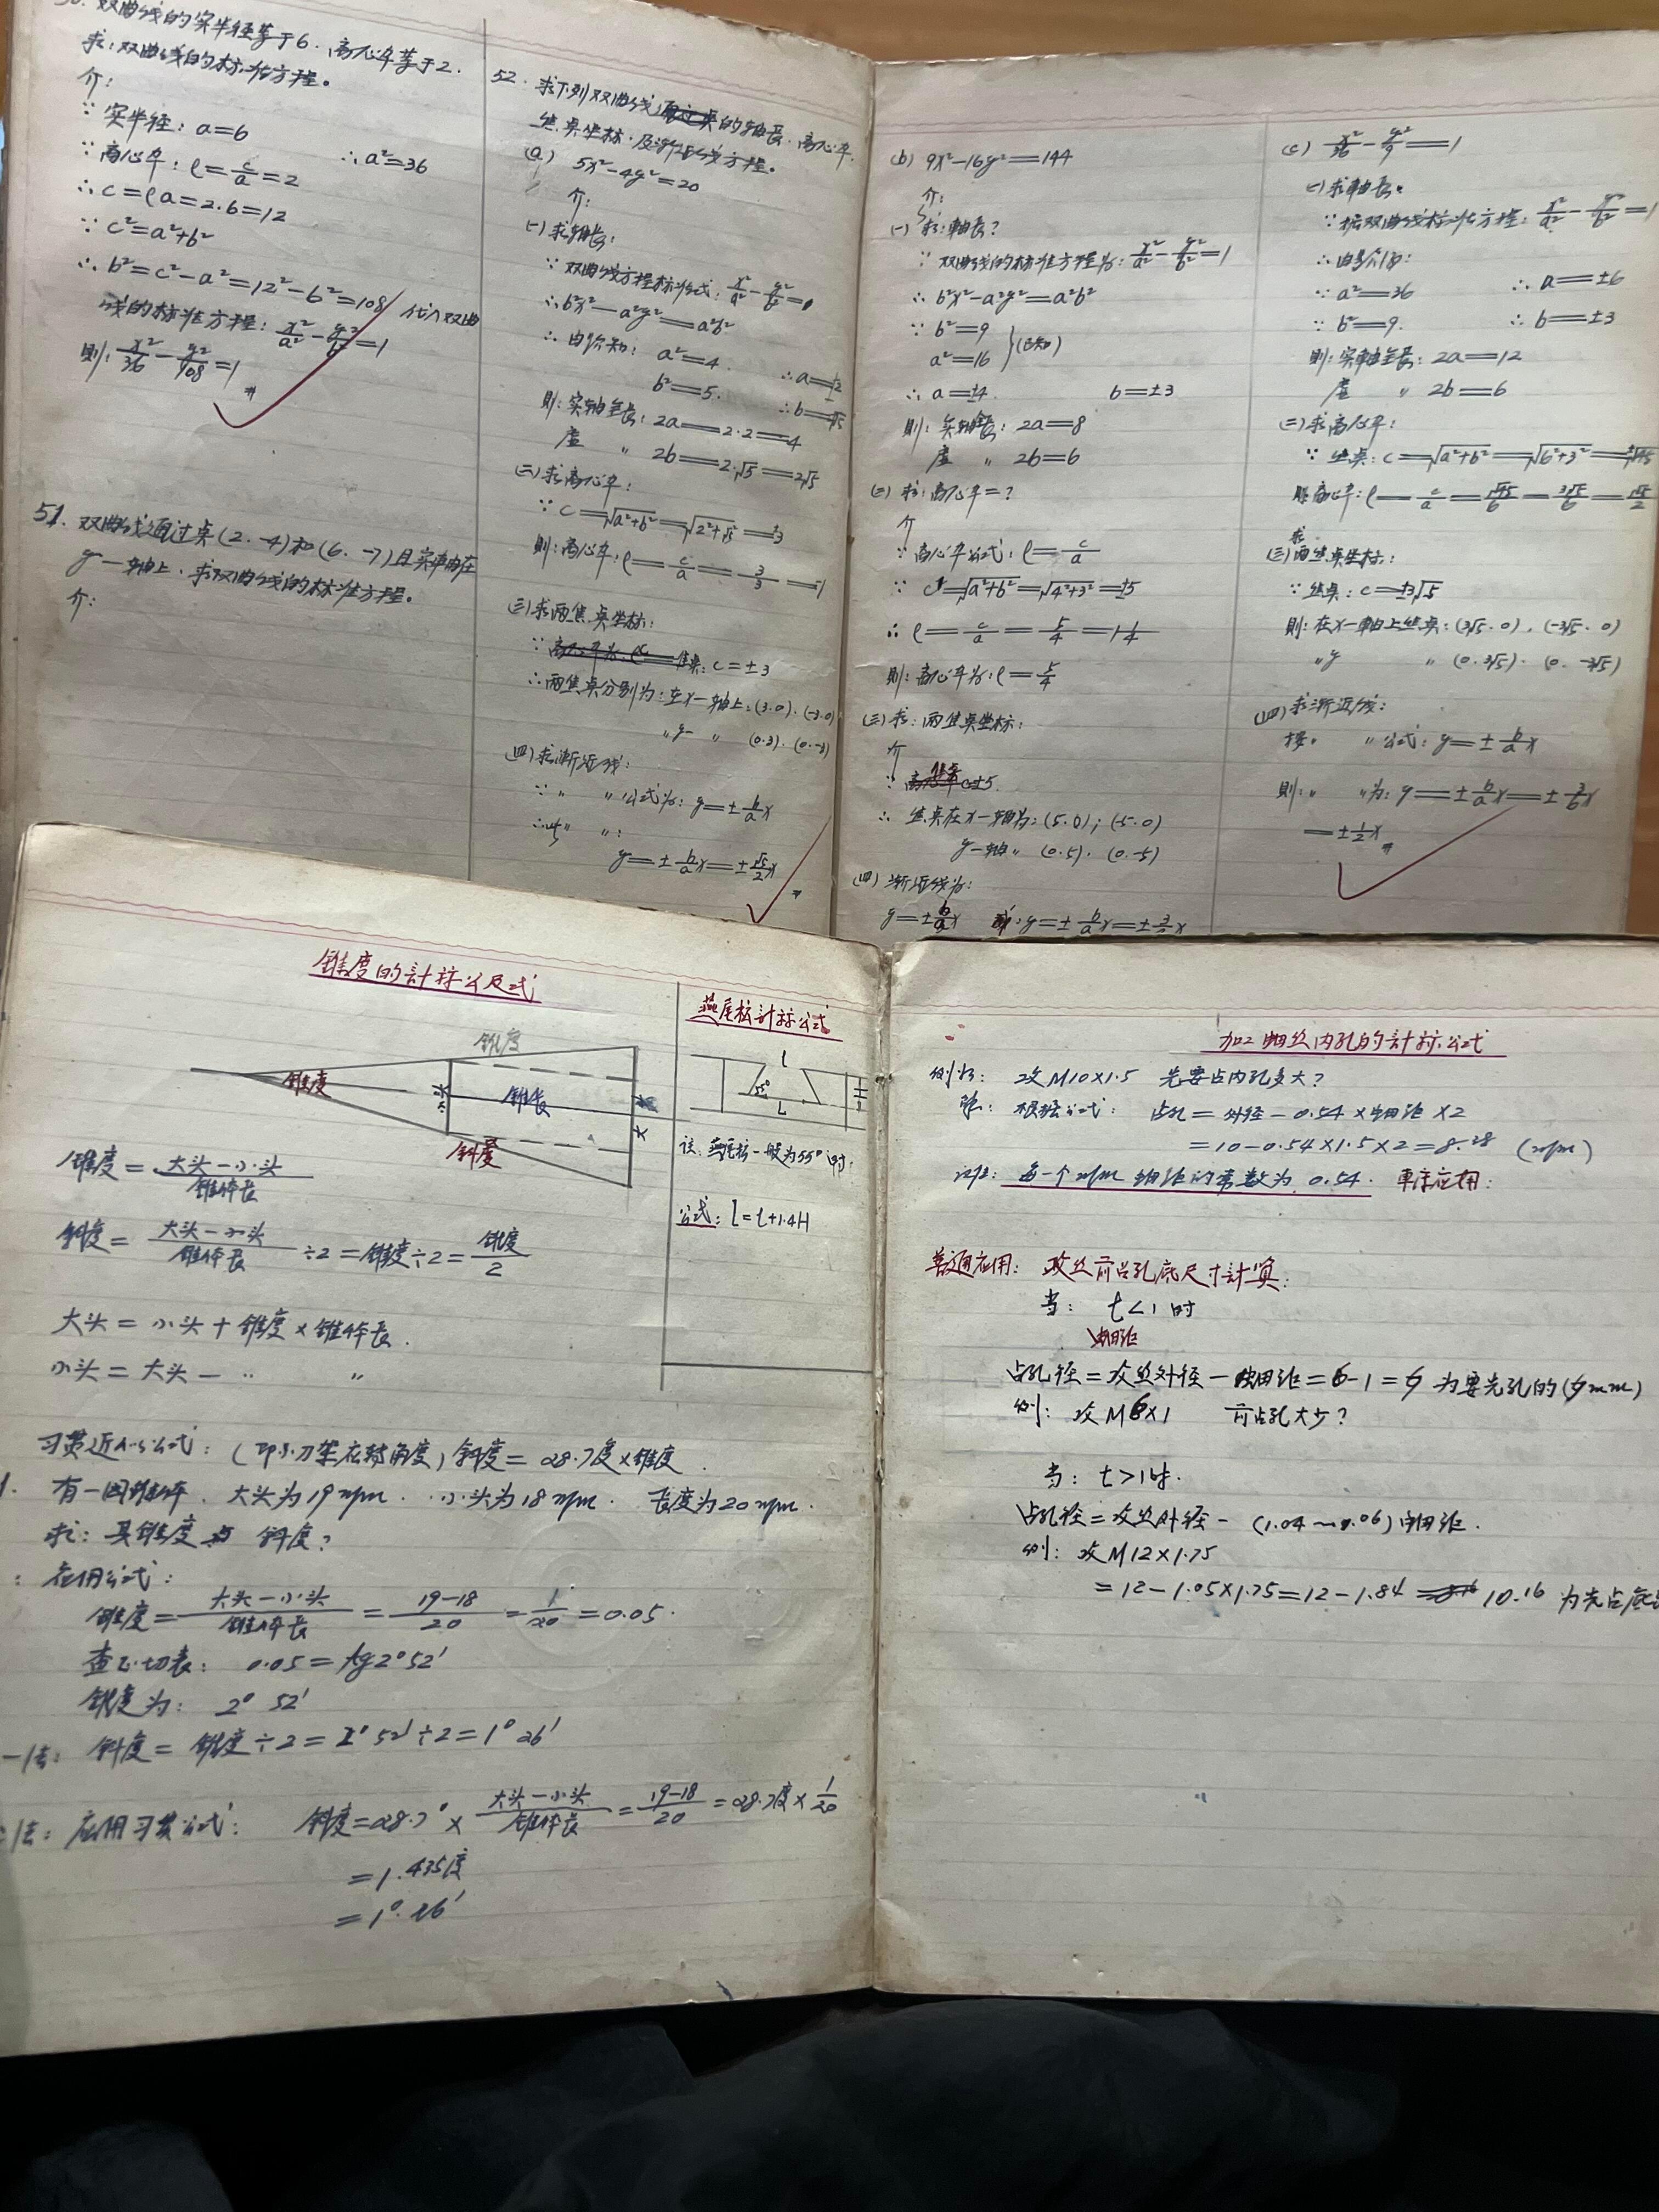 双曲线的实半径等于6.离心率等于2.
求:双曲线的标准方程。
介:
∵ 实半径: a=6 ∴a²=36
∵ 离心率: e=c/a=2
∴ c=ea=2.6=12
∵ c²=a²+b²
∴ b²=c²-a²=12²-6²=108 代入双曲
线的标准方程: x²/a²-y²/b²=1
则: x²/36-y²/108=1
51. 双曲线通过点(2.-4)和(6.-7)且实轴在
y-轴上.求双曲线的标准方程。
介:
52. 求下列双曲线的轴长.离心率.
焦点坐标.及渐近线方程。
(a) 5x²-4y²=20
介:
(一)求轴长:
∵ 双曲线方程标准式: x²/a²-y²/b²=
∴b²x²-a²y²=a²b²
∴由介知: a²=4. ∴a=±2
b²=5. ∴b=±√5
则:实轴全长: 2a=2.2=4
虚 〃 2b=2.√5=2√5
(二)求离心率:
∵ c=√a²+b²=√2²+√5²=±3
则:离心率: e=c/a=3/3=1
(三)求两焦点坐标:
∵ 焦点: c=±3
∴两焦点分别为:在x-轴上:(3.0).(-3.0)
〃y- 〃 (0.3).(0.-3)
(四)求渐近线:
∵〃 〃公式为: y=±b/a x
∴此〃 〃:
y=±b/a x=±√5/2 x
(b) 9x²-16y²=144
介:
(一)求:轴长?
∵ 双曲线的标准方程为: x²/a²-y²/b²=1
∴ b²x²-a²y²=a²b²
∵ b²=9
a²=16 }(已知)
∴ a=±4. b=±3
则: 实轴长: 2a=8
虚 〃 2b=6
(二) 求:离心率=?
介
∵ 离心率公式: e=c/a
∵ c=√a²+b²=√4²+3²=±5
∴ e=c/a=5/4=1 1/4
则:离心率为: e=5/4
(三)求:两焦点坐标:
介
∵ 焦点 c±5.
∴ 焦点在x-轴为:(5.0);(-5.0)
y-轴〃 (0.5).(0.-5)
(四) 渐近线为:
y=±b/a x 则:y=±b/a x=±3/ x
(c) x²/36-y²/9=1
(一)求轴长.
∵据双曲线标准方程: x²/a²-y²/b²=1
∴
∵ a²=36 ∴ a=±6
∵ b²=9. ∴ b=±3
则:实轴全长: 2a=12
虚 〃 2b=6
(二)求离心率:
∵ 焦点: c=√a²+b²=√6²+3²=±√45
离心率: e=c/a=√45/6=3√5/6=√5/2
(三)求两焦点坐标:
∵ 焦点: c=±3√5
则:在x-轴上焦点:(3√5.0).(-3√5.0)
〃y 〃 (0.3√5).(0.-3√5)
(四)求渐近线:
按. 〃公式: y=±b/a x
则:〃 〃为: y=±b/a x=±3/6 x
=±1/2 x
锥度的計祘公及式
锥度
锥度
小头
锥长
大头
斜度
锥度=大头-小头/锥体长
斜度=大头-小头/锥体长÷2=锥度÷2=锥度/2
大头=小头+锥度×锥体长.
小头=大头-〃 〃
习贯近似公式:(即小刀架应转角度)斜度=28.7度×锥度.
有一圆锥体.大头为19m/m.小头为18m/m.长度为20m/m.
求:其锥度与斜度?
应用公式:
锥度=大头-小头/锥体长=19-18/20=1/20=0.05.
查正切表: 0.05=tg2°52′
锥度为: 2°52′
一法: 斜度=锥度÷2=2°52′÷2=1°26′
法:应用习贯公式: 斜度=28.7°×大头-小头/锥体长=19-18/20=28.7度×1/20
=1.435度
=1°.26′
燕尾松計祘公式
l
55°
L
H
注.燕尾松一般为55°时:
公式: L=l+1.4H
加工螺丝内孔的計祘公式
例如: 攻M10×1.5 先要占内孔多大?
解: 根据公式: 占孔=外径-0.54×螺距×2
=10-0.54×1.5×2=8.38 (m/m)
注: 每一个m/m螺距的常数为0.54. 車床应用:
普通应用: 攻丝前占孔底尺寸計算:
当: t<1时
螺距
占孔径=攻丝外径-螺距=6-1=5 为要先孔的(5mm)
例: 攻M6×1 前占孔大少?
当: t>1时.
占孔径=攻丝外径-(1.04~1.06)螺距.
例: 攻M12×1.75
=12-1.05×1.75=12-1.84= 10.16 为先占底